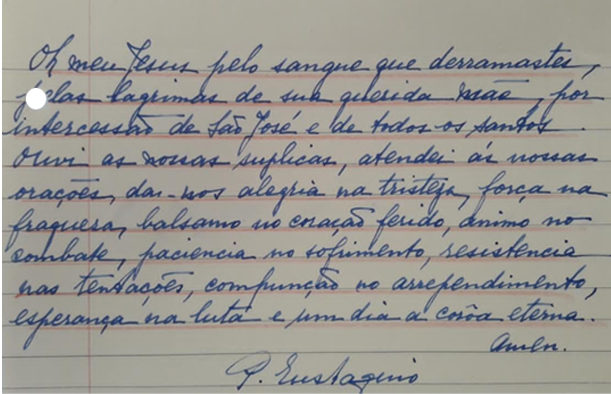 Oh meu Jesus pelo sangue que derramastes,
pelas lagrimas de sua querida Mãe, por
intercessão de São José e de todos os santos.
Ouvi as nossas suplicas, atendei ás nossas
orações, dai-nos alegria na tristeza, força na
fraqueza, balsamo no coração ferido, animo no
combate, paciencia no sofrimento, resistencia
nas tentações, compunção no arrependimento,
esperança na luta e um dia a corôa eterna.
Amen.
P. Eustaquio